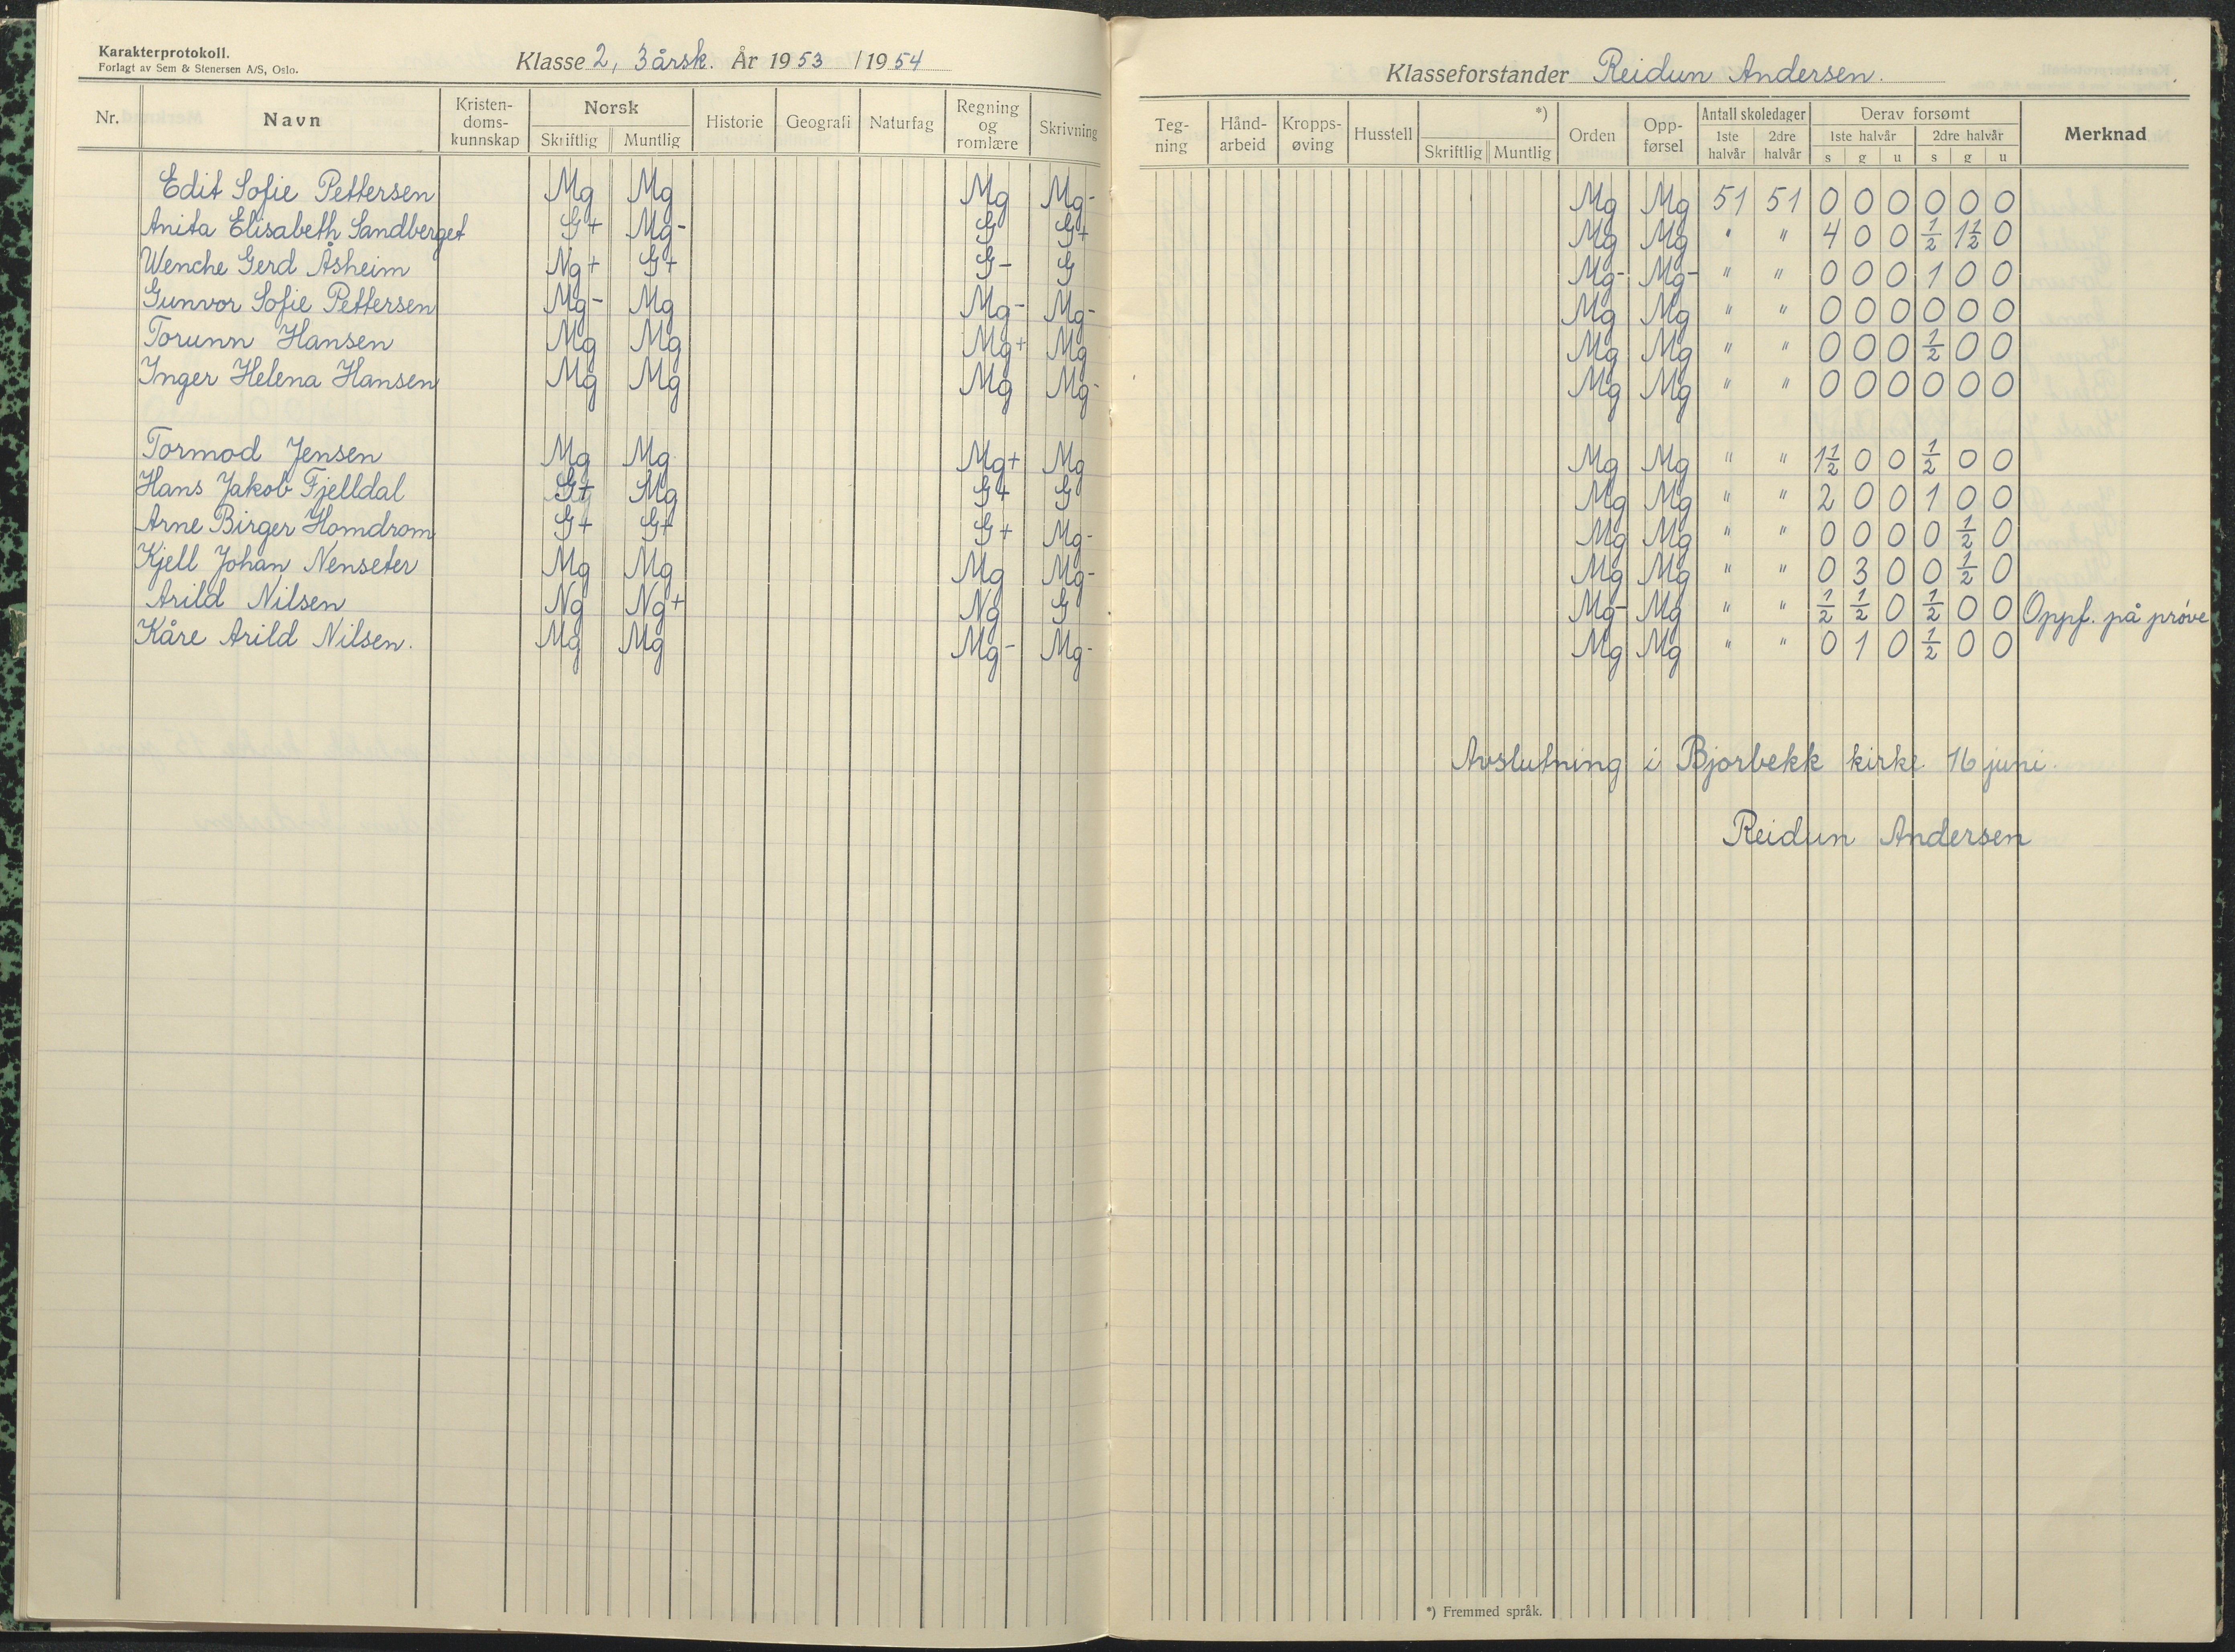 Karakterprotokoll.
Forlagt av Sem & Stenersen A/S, Oslo.
Klasse 2, 3 årsk. År 1953 / 1954
Nr. Navn Kristendoms-kunnskap Norsk Skriftlig Muntlig Historie Geografi Naturfag Regning og romlære Skrivning
Edit Sofie Pettersen Mg Mg Mg Mg-
Anita Elisabeth Sandberget G+ Mg- G G+
Wenche Gerd Åsheim Ng+ G+ G- G
Gunvor Sofie Pettersen Mg- Mg Mg- Mg-
Torunn Hansen Mg Mg Mg+ Mg
Inger Helena Hansen Mg Mg Mg Mg-
Tormod Jensen Mg Mg Mg+ Mg
Hans Jakob Fjelldal G+ Mg G+ G
Arne Birger Homdrom G+ G+ G+ Mg-
Kjell Johan Nenseter Mg Mg Mg Mg-
Arild Nilsen Ng Ng+ Ng G
Kåre Arild Nilsen. Mg Mg Mg- Mg-
Klasseforstander Reidun Andersen.
Teg-ning Hånd-arbeid Kropps-øving Husstell *) Skriftlig Muntlig Orden Opp-førsel Antall skoledager 1ste halvår 2dre halvår Derav forsømt 1ste halvår s g u 2dre halvår s g u Merknad
Mg Mg 51 51 0 0 0 0 0 0
Mg Mg " " 4 0 0 1/2 1 1/2 0
Mg- Mg- " " 0 0 0 1 0 0
Mg Mg " " 0 0 0 0 0 0
Mg Mg " " 0 0 0 1/2 0 0
Mg Mg " " 0 0 0 0 0 0
Mg Mg " " 1 1/2 0 0 1/2 0 0
Mg Mg " " 2 0 0 1 0 0
Mg Mg " " 0 0 0 0 1/2 0
Mg Mg " " 0 3 0 0 1/2 0
Mg- Mg " " 1/2 1/2 0 1/2 0 0 Oppf. på prøve
Mg Mg " " 0 1 0 1/2 0 0
Avslutning i Bjorbekk kirke 16 juni.
Reidun Andersen
*) Fremmed språk.